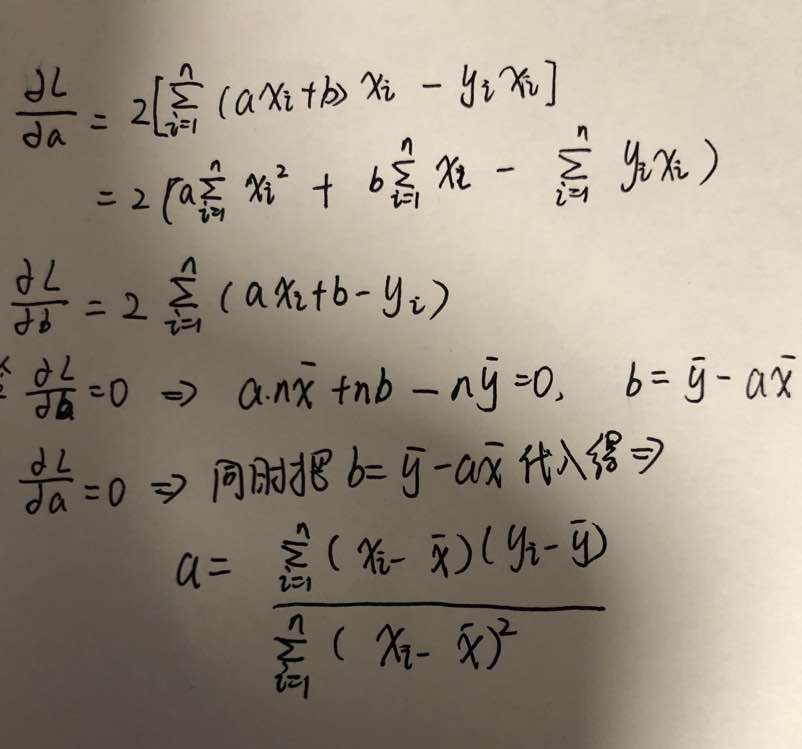 ∂L/∂a = 2[∑_{i=1}^{n} (ax_i+b) x_i − y_i x_i]
= 2 [a∑_{i=1}^{n} x_i² + b∑_{i=1}^{n} x_i − ∑_{i=1}^{n} y_i x_i)
∂L/∂b = 2 ∑_{i=1}^{n} (ax_i+b−y_i)
∂L/∂b =0 ⇒ a.nx̄ +nb − nȳ =0, b= ȳ − ax̄
∂L/∂a =0 ⇒ 同时把 b= ȳ −ax̄ 代入得 ⇒
a= ∑_{i=1}^{n} (x_i− x̄)(y_i− ȳ) / ∑_{i=1}^{n} (x_i− x̄)²